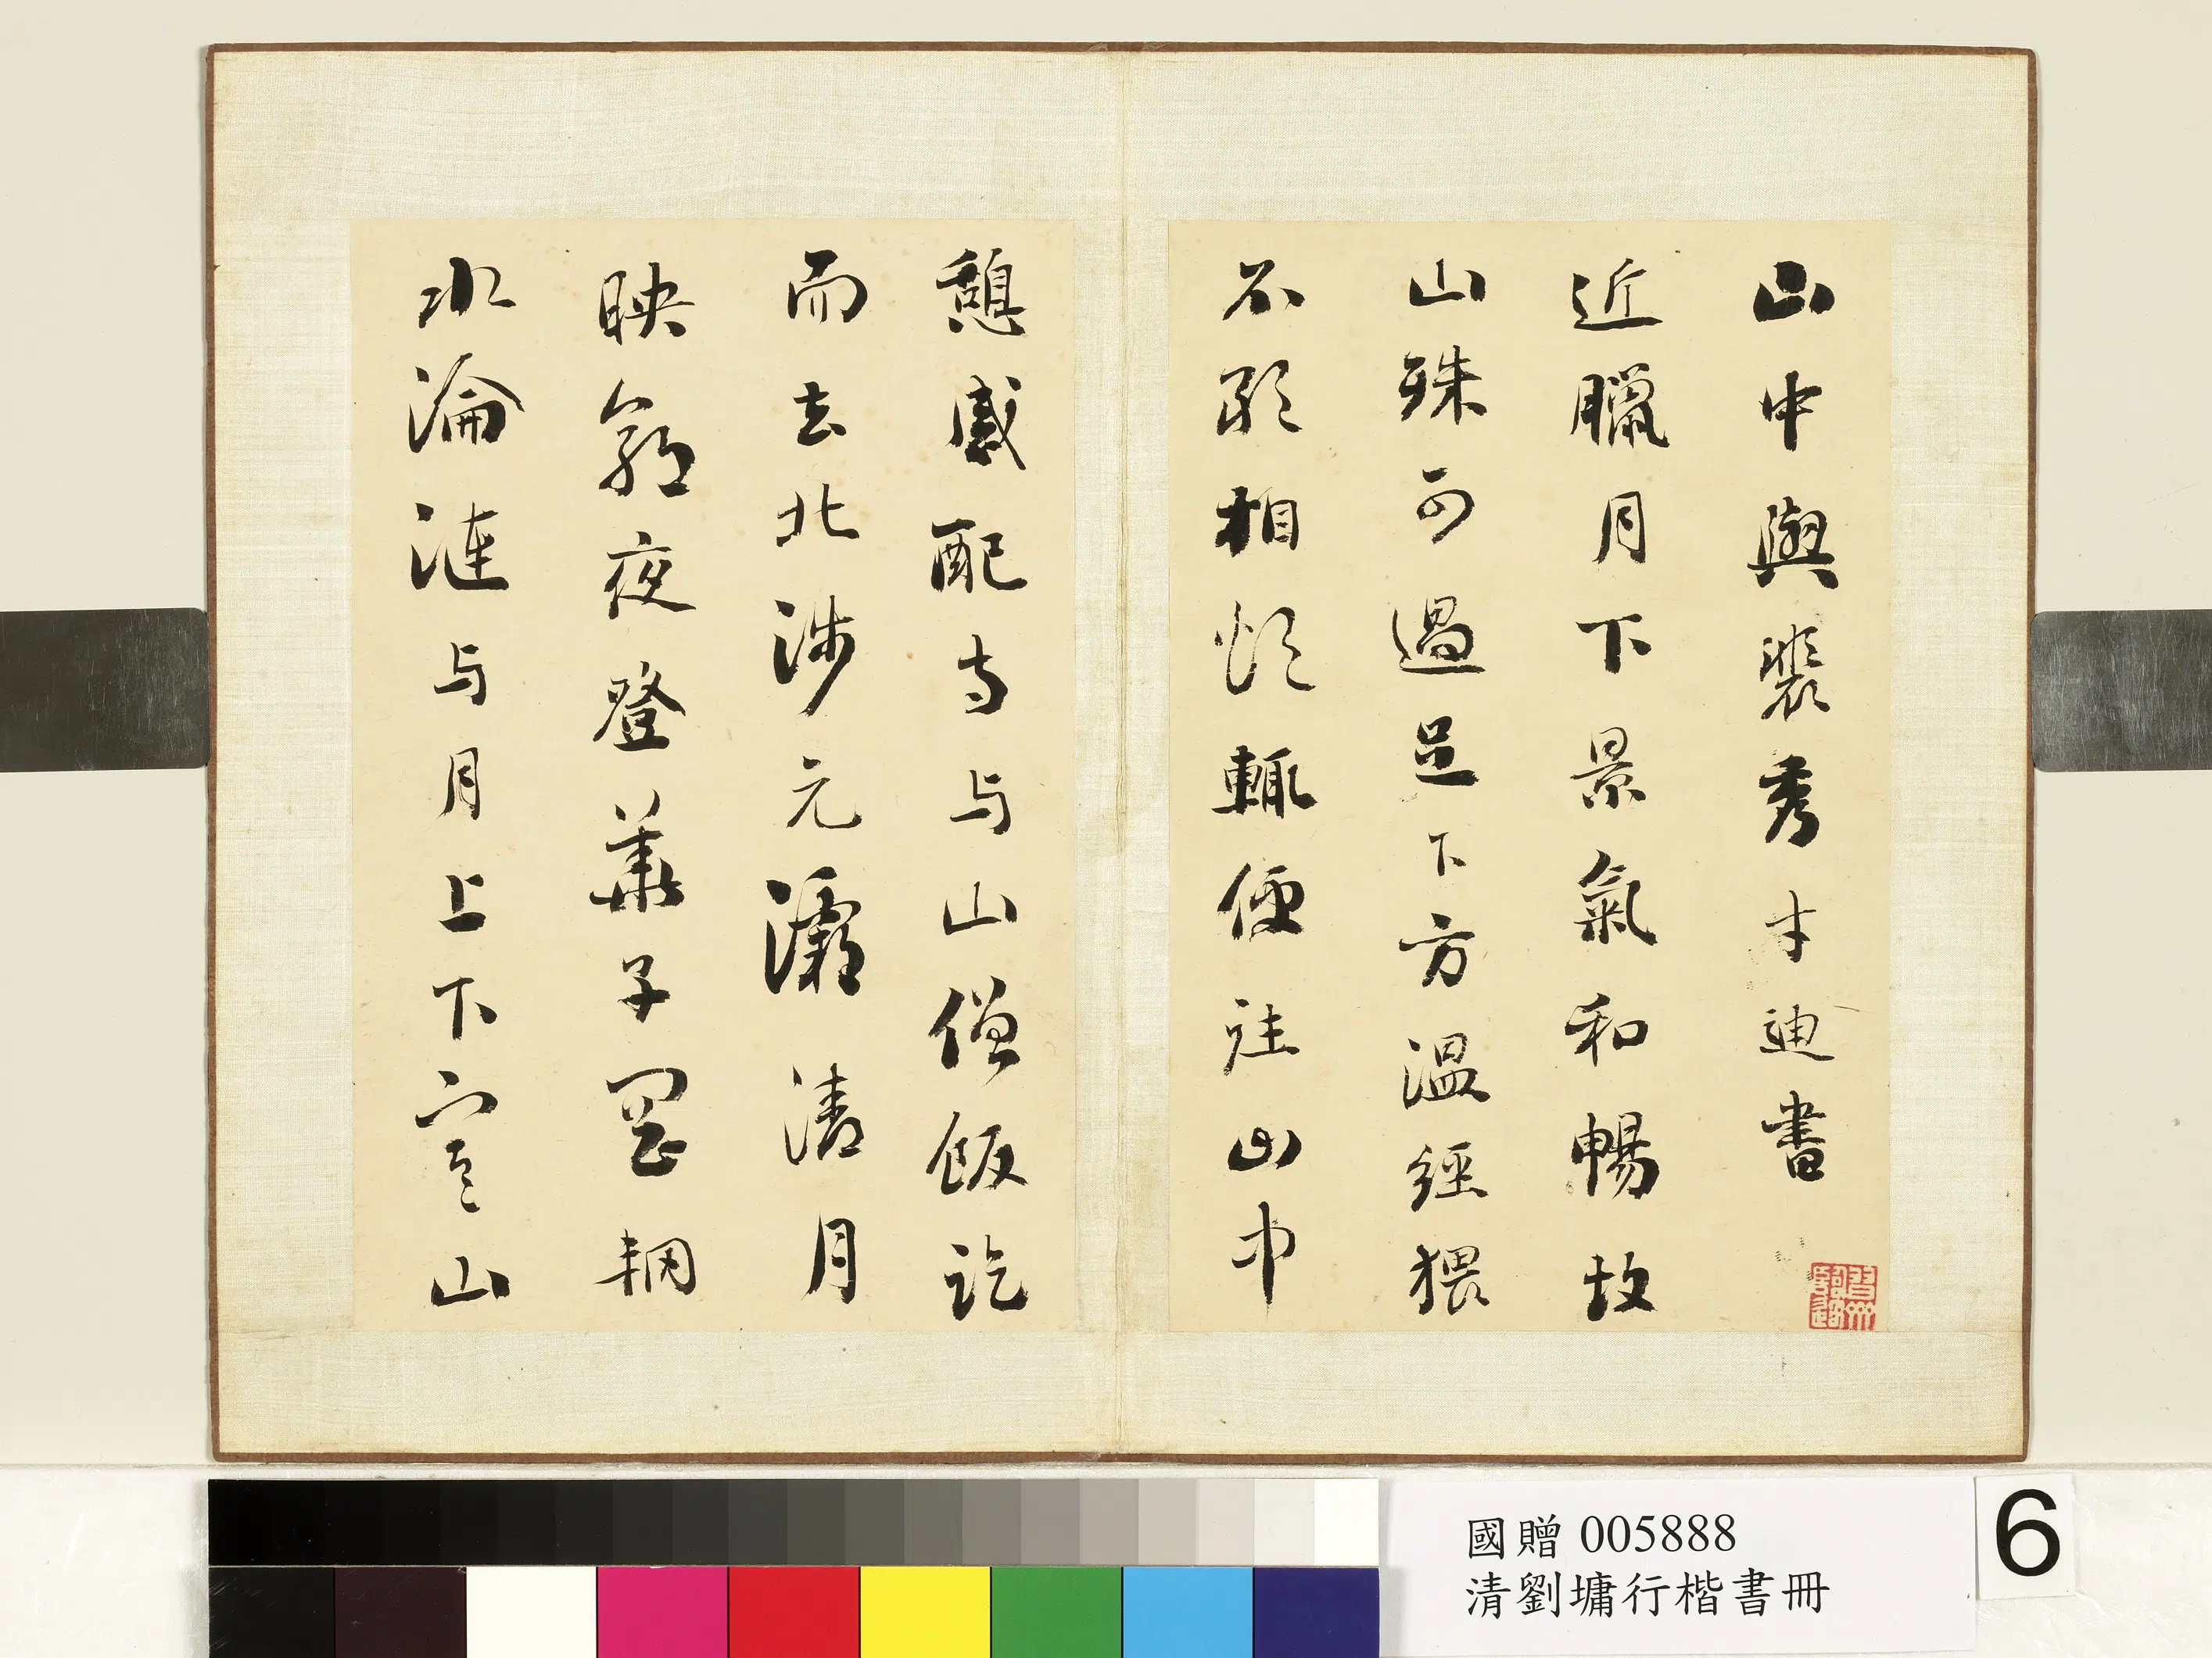 山中與裴秀才迪書
近臘月下景氣和暢故
山殊可過足下方溫經猥
不敢相煩輒便往山中
憩感配寺与山僧飯訖
而去北涉元灞清月
映郭夜登華子岡輞
水淪漣与月上下寒山
國贈 005888
清劉墉行楷書冊
6